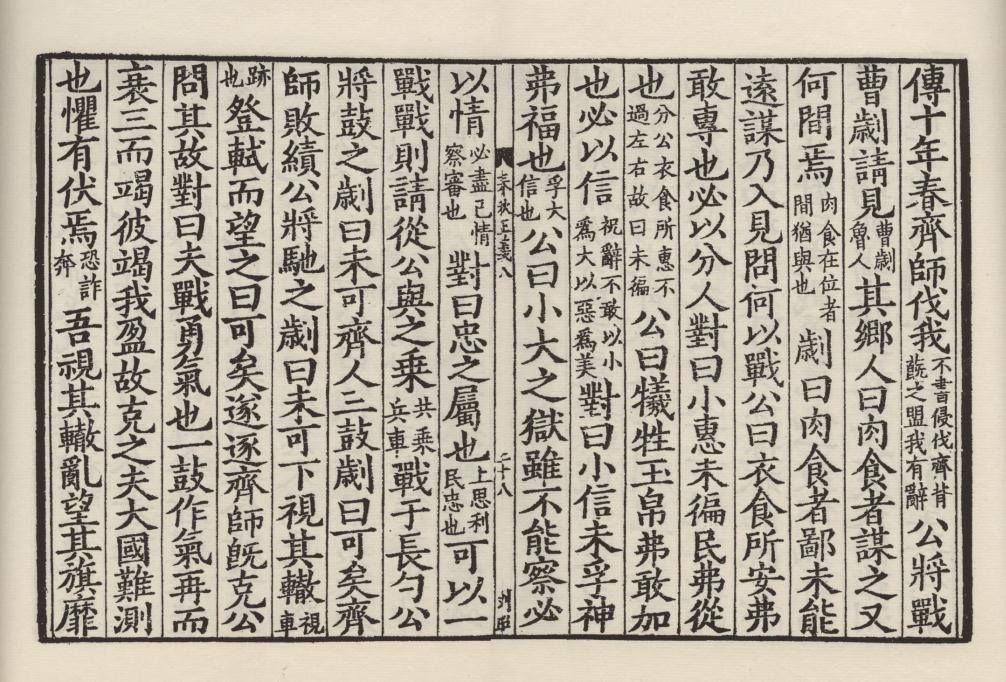 傳十年春齊師伐我不書侵伐齊背蔇之盟我有辭公將戰
曹劌請見曹劌魯人其鄉人曰肉食者謀之又
何間焉肉食在位者間猶與也劌曰肉食者鄙未能
遠謀乃入見問何以戰公曰衣食所安弗
敢專也必以分人對曰小惠未徧民弗從
也分公衣食所惠不過左右故曰未徧公曰犧牲玉帛弗敢加
也必以信祝辭不敢以小爲大以惡爲美對曰小信未孚神
弗福也孚大信也公曰小大之獄雖不能察必
春秋正義八 二十八
以情必盡己情察審也對曰忠之屬也上思利民忠也可以一
戰戰則請從公與之乗共乗兵車戰于長勺公
將鼓之劌曰未可齊人三鼓劌曰可矣齊
師敗績公將馳之劌曰未可下視其轍視車
跡也登軾而望之曰可矣遂逐齊師旣克公
問其故對曰夫戰勇氣也一鼓作氣再而
衰三而竭彼竭我盈故克之夫大國難測
也懼有伏焉恐詐奔吾視其轍亂望其旗靡